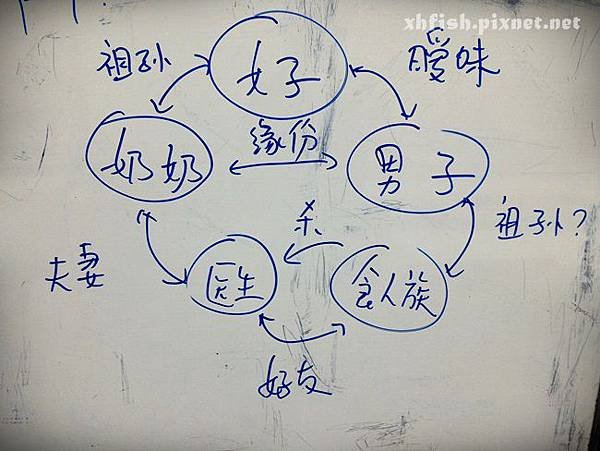 xhfish.pixnet.net
祖孙
女子
曖昧
奶奶
缘份
男子
杀
祖孙?
夫妻
医生
食人族
好友